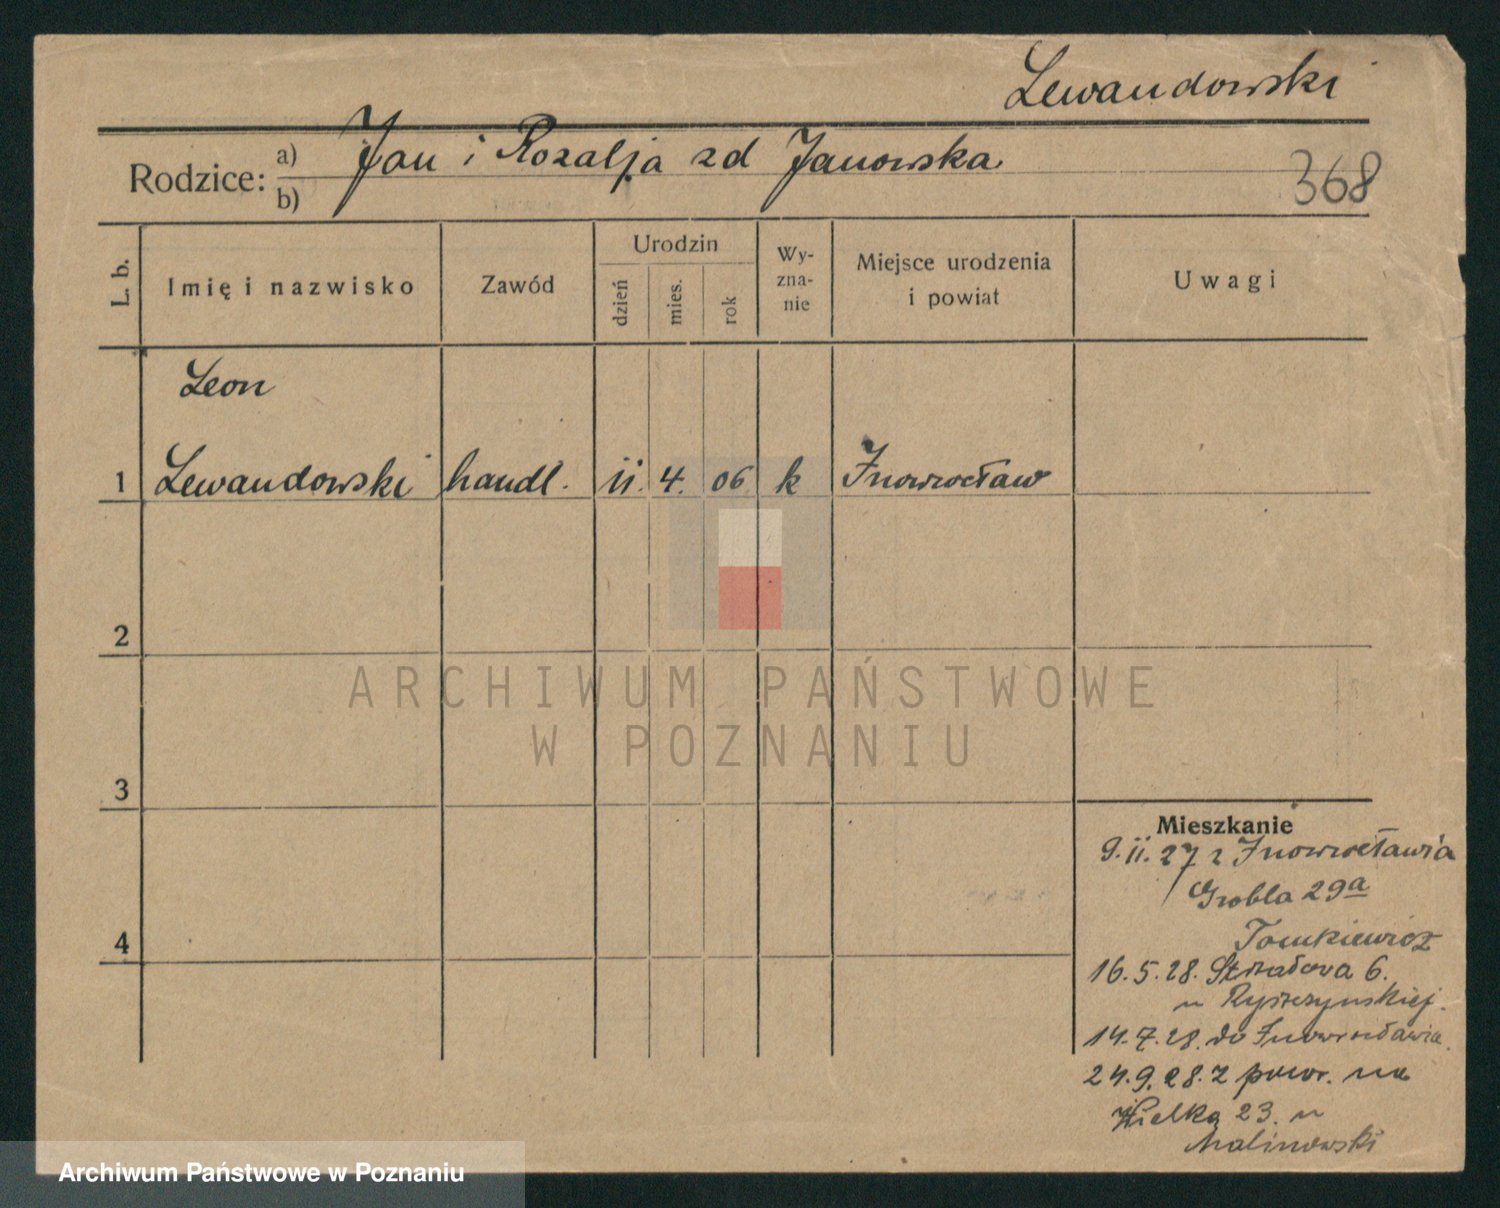 Lewandowski
Rodzice: a) Jan i Rozalja zd Janowska
b)
368
L. b.
Imię i nazwisko
Zawód
Urodzin
dzień
mies.
rok
Wy-
zna-
nie
Miejsce urodzenia
i powiat
Uwagi
Leon
1 Lewandowski handl. 11. 4. 06 k Inowrocław
2
3
4
Mieszkanie
9.11.27 z Inowrocławia
Grobla 29a
Tomkiewicz
16.5.28. Strzałowa 6.
u
14.7.28. do Inowrocławia.
24.9.28. z powr. na
Wielka 23. u
Malinowski
ARCHIWUM PAŃSTWOWE
W POZNANIU
Archiwum Państwowe w Poznaniu